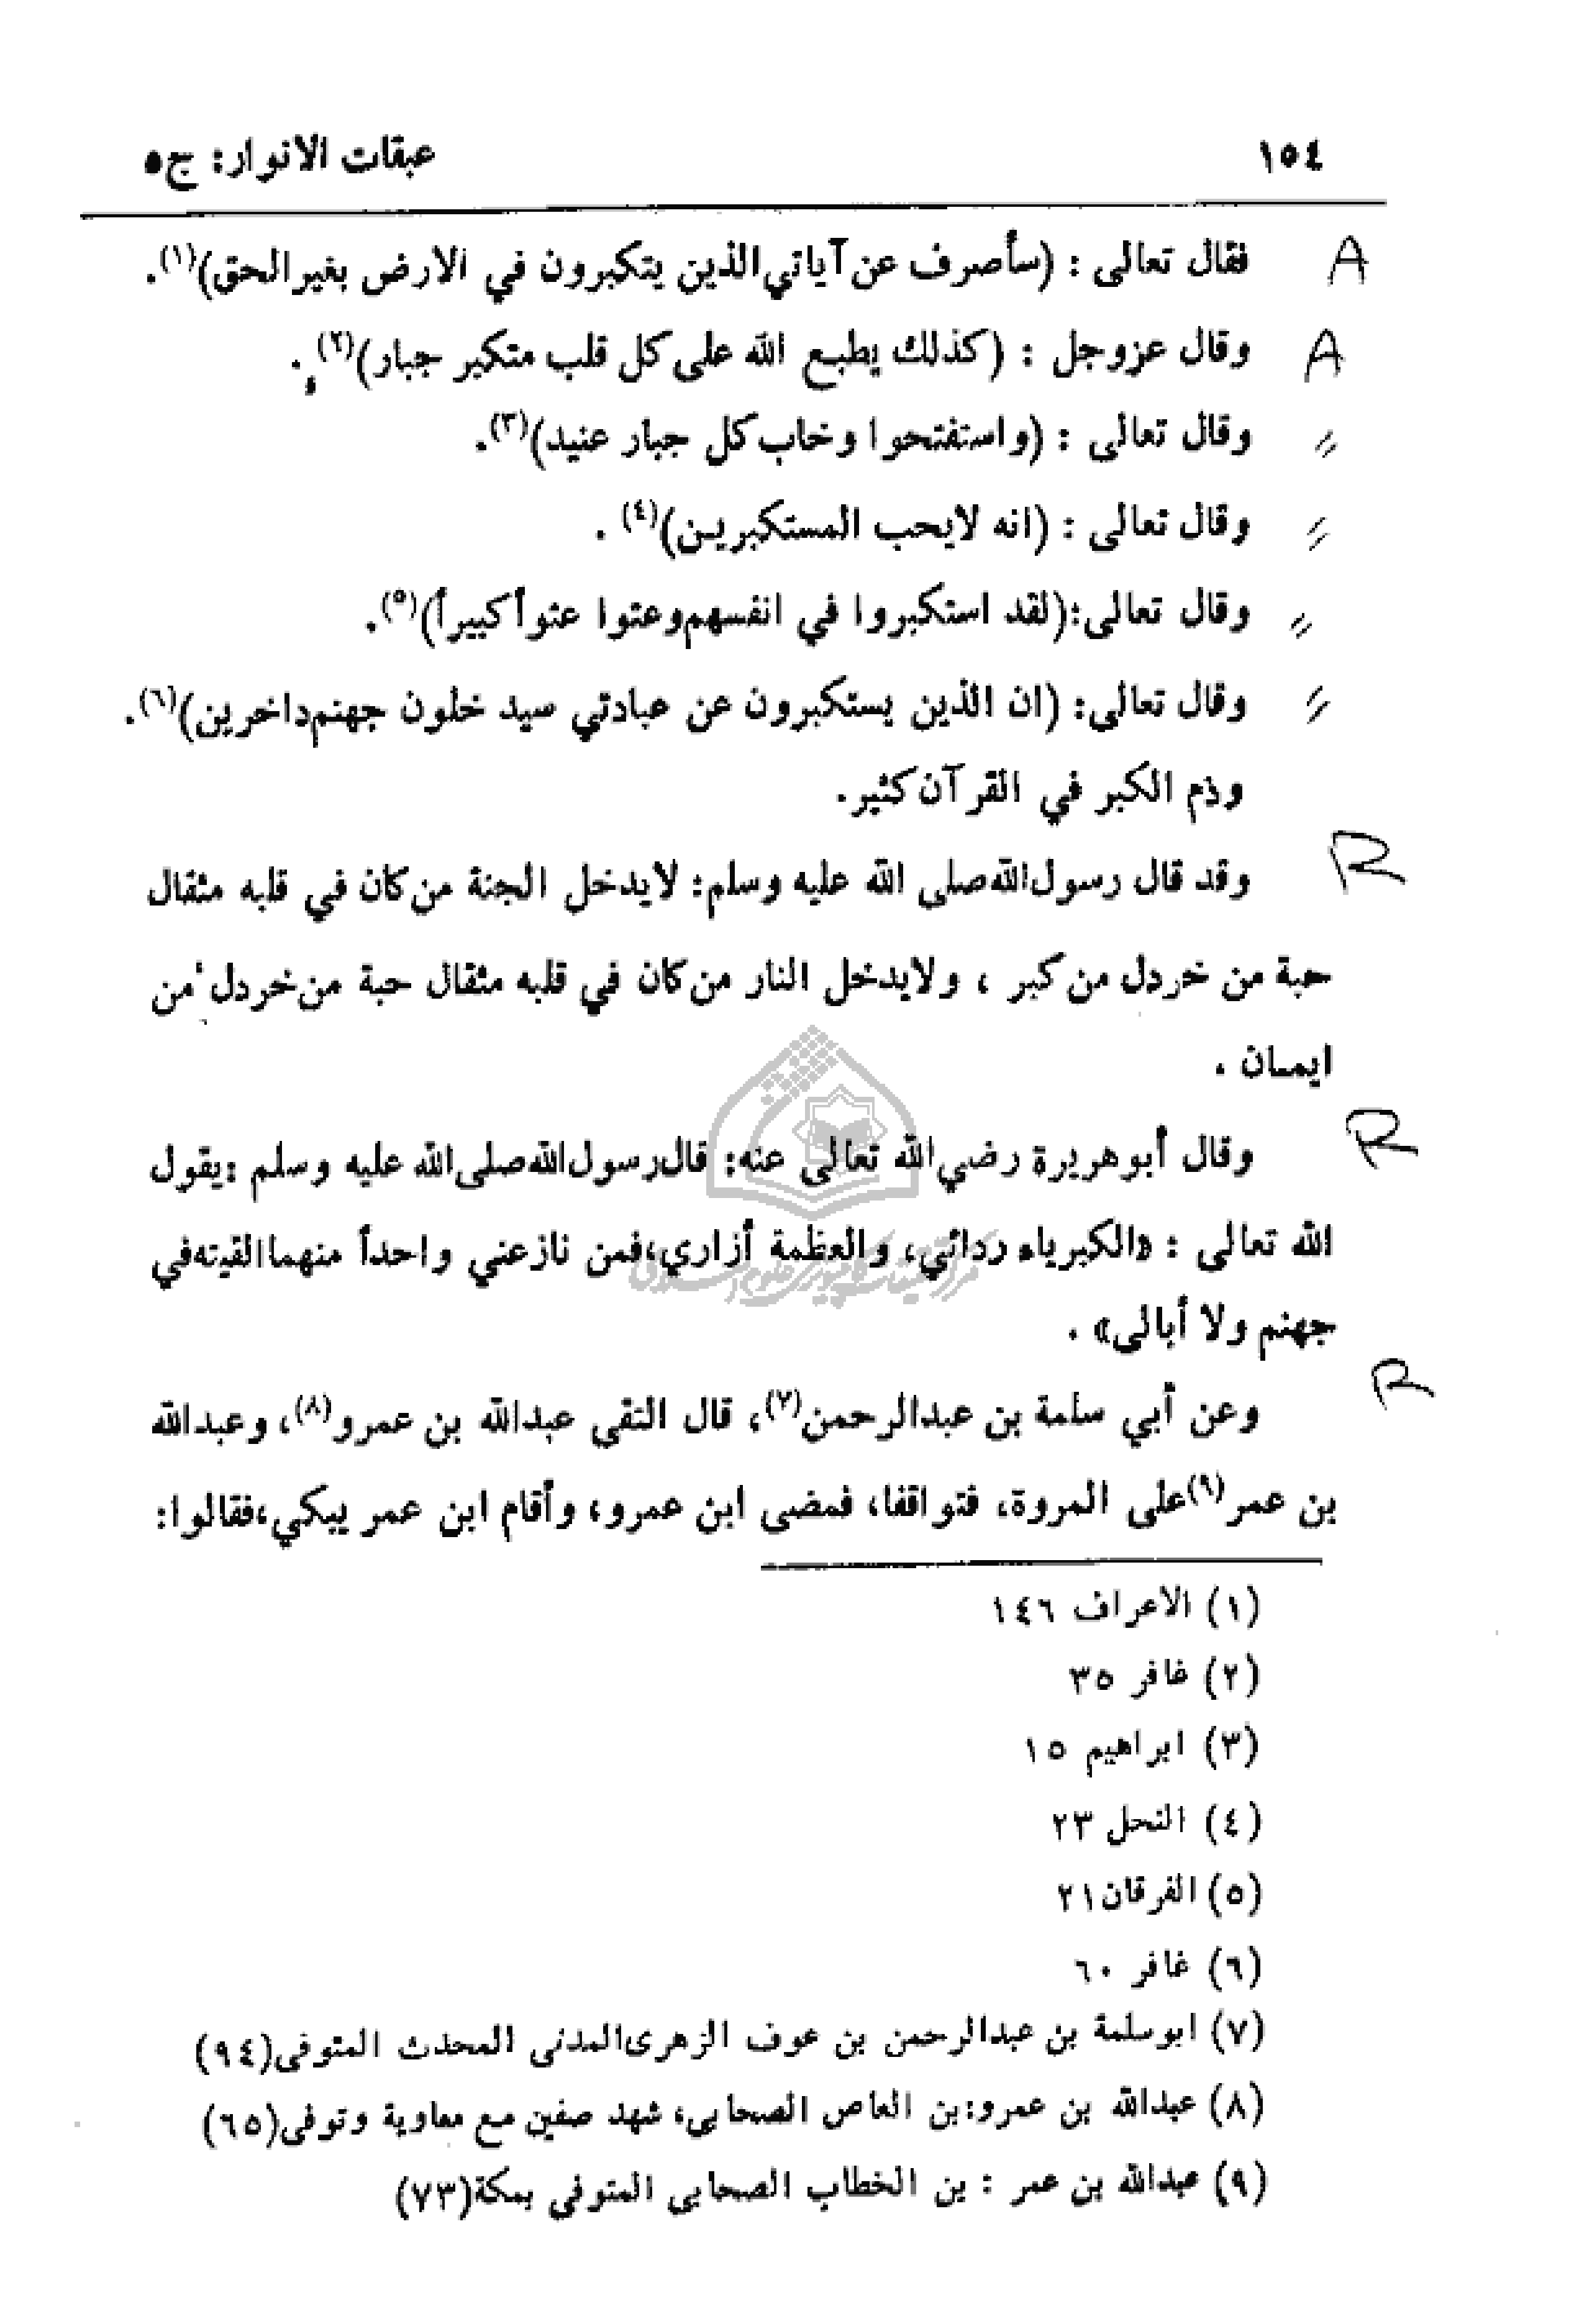 ١٥٤ عبقات الانوار: ج٥
A فقال تعالى : (سأصرف عن آياتي الذين يتكبرون في الارض بغير الحق)(١).
A وقال عزوجل : (كذلك يطبع الله على كل قلب متكبر جبار)(٢).
〃 وقال تعالى : (واستفتحوا وخاب كل جبار عنيد)(٣).
〃 وقال تعالى : (انه لايحب المستكبرين)(٤) .
〃 وقال تعالى:(لقد استكبروا في انفسهم وعتوا عتواً كبيراً)(٥).
〃 وقال تعالى: (ان الذين يستكبرون عن عبادتي سيد خلون جهنم داخرين)(٦).
وذم الكبر في القرآن كثير.
R وقد قال رسول الله صلى الله عليه وسلم: لايدخل الجنة من كان في قلبه مثقال
حبة من خردل من كبر ، ولايدخل النار من كان في قلبه مثقال حبة من خردل من
ايمان .
R وقال أبوهريرة رضي الله تعالى عنه: قال رسول الله صلى الله عليه وسلم :يقول
الله تعالى : «الكبرياء ردائي، والعظمة أزاري،فمن نازعني واحداً منهما القيته في
جهنم ولا أبالى» .
R وعن أبي سلمة بن عبدالرحمن(٧)، قال التقى عبدالله بن عمرو(٨)، وعبدالله
بن عمر(٩)على المروة، فتواقفا، فمضى ابن عمرو، وأقام ابن عمر يبكي،فقالوا:
(١) الاعراف ١٤٦
(٢) غافر ٣٥
(٣) ابراهيم ١٥
(٤) النحل ٢٣
(٥) الفرقان ٢١
(٦) غافر ٦٠
(٧) ابوسلمة بن عبدالرحمن بن عوف الزهرى المدنى المحدث المتوفى(٩٤)
(٨) عبدالله بن عمرو:بن العاص الصحابى، شهد صفين مع معاوية وتوفى(٦٥)
(٩) عبدالله بن عمر : بن الخطاب الصحابى المتوفى بمكة(٧٣)